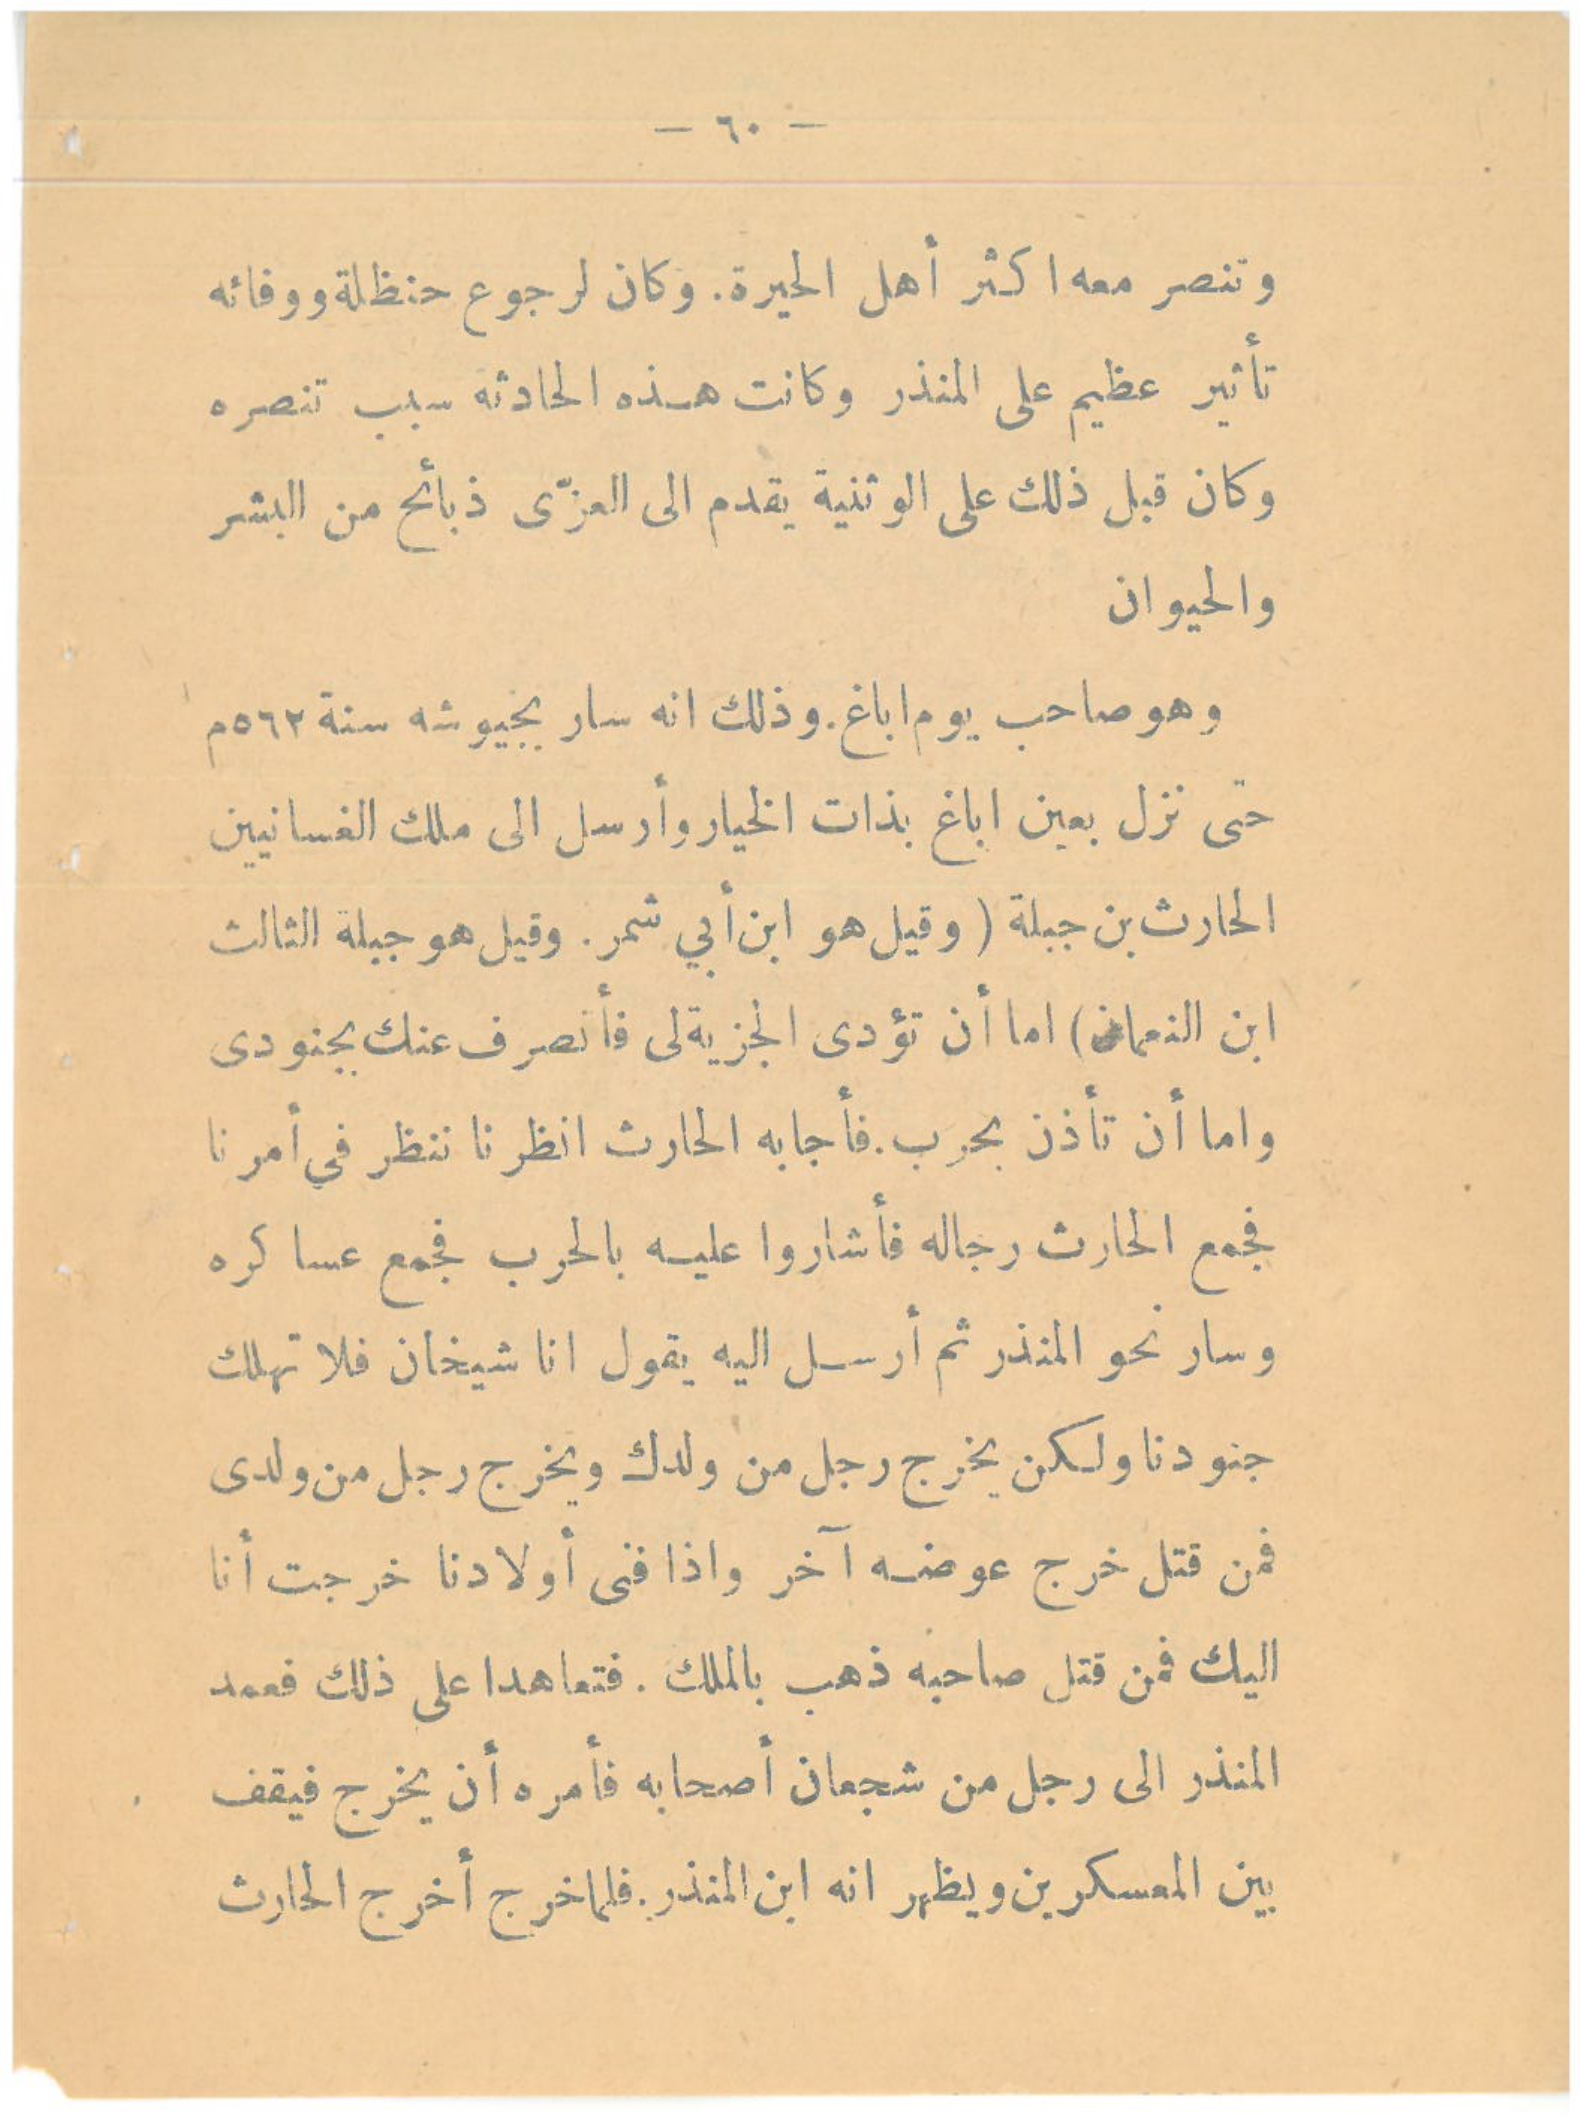 — ٦٠ —
وتنصر معه اكثر أهل الحيرة. وكان لرجوع حنظلة ووفائه
تأثير عظيم على المنذر وكانت هذه الحادثة سبب تنصره
وكان قبل ذلك على الوثنية يقدم الى العزّى ذبأئح من البشر
والحيوان
وهو صاحب يوم اباغ. وذلك انه سار بجيوشه سنة ٥٦٢م
حتى نزل بعين اباغ بذات الخيار وأرسل الى ملك الغسانيين
الحارث بن جبلة (وقيل هو ابن أبي شمر. وقيل هو جبلة الثالث
ابن النعمان) اما أن تؤدى الجزية لى فأنصرف عنك بجنودى
واما أن تأذن بحرب. فأجابه الحارث انظرنا ننظر في أمرنا
فجمع الحارث رجاله فأشاروا عليه بالحرب فجمع عساكره
وسار نحو المنذر ثم أرسل اليه يقول انا شيخان فلا تهلك
جنودنا ولكن يخرج رجل من ولدك ويخرج رجل من ولدى
فمن قتل خرج عوضه آخر واذا فنى أولادنا خرجت أنا
اليك فمن قتل صاحبه ذهب بالملك. فتعاهدا على ذلك فعمد
المنذر الى رجل من شجعان أصحابه فأمره أن يخرج فيقف
بين المعسكرين ويظهر انه ابن المنذر. فلما خرج أخرج الحارث